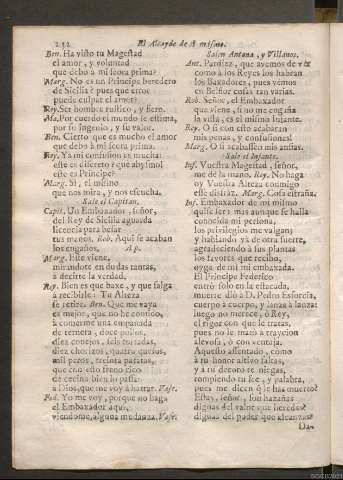 252
El Alcayde de si mismo.
Ben. Ha visto tu Magestad
el amor, y voluntad
que debo à mi señora prima?
Marg. No es un Principe heredero
de Sicilia? pues que error
puede culpar el amor?
Rey. Ser hombre rustico, y fiero.
Ma. Por cuerdo el mundo le estima,
por su ingenio, y su valor.
Ben. Cierto que es mucho el amor
que debo à mi señora prima.
Rey. Ya mi confusion es mucha:
este es discreto? què abysmo!
este es Principe?
Marg. Si, el mismo
que nos mira, y nos escucha.
Sale el Capitan.
Capit. Un Embaxador, señor,
del Rey de Sicilia aguarda
licencia para besar
tus manos. Rob. Aqui se acaban
los engaños. Ap.
Marg. Este viene,
mirandote en dudas tantas,
à decirte la verdad.
Rey. Bien es que baxe, y que salga
à recibirle: Tu Alteza
se retire. Ben. Que me vaya
es mejor, que no he comido,
à comerme una empanada
de ternera, doce pollos,
diez conejos, seis tostadas,
diez chorizos, quatro quesos,
mil peros, treinta patatas,
que con esto freno rico
de cecina bien lo passa:
à Dios, que me voy à hartar. Vase.
Fed. Yo me voy, porque no haga
el Embaxador aqui,
viendome, alguna mudanza. Vase.
Salen Antona, y Villanos.
Ant. Pardiez, que avemos de ver
como à los Reyes los hablan
los Baxadores, pues vèmos
en Belflor cosas tan varias.
Rob. Señor, el Embaxador
que viene, si no me engaña
la vista, es el mismo Infante.
Rey. O si con esto acabàran
mis penas, y confusiones!
Marg. O si acabassen mis ansias.
Sale el Infante.
Inf. Vuestra Magestad, señor,
me dè la mano. Rey. No haga
oy Vuestra Alteza conmigo
esse disfràz. Marg. Cosa estraña.
Inf. Embaxador de mi mismo
quise ser; mas aunque se halla
conocida mi persona,
los privilegios me valgan;
y hablando yà de otra suerte,
agradeciendo à sus plantas
los favores que recibo,
oyga de mi mi embaxada.
El Principe Federico
entrò solo en la estacada,
muerte diò à D. Pedro Esforcia,
cuerpo à cuerpo, y lanza à lanza:
luego no merece, ò Rey,
el rigor con que le tratas,
pues no le matò à traycion
alevosa, ò con ventaja.
Aqueste assentado, como
à tu honor altivo faltas,
y à tu decoro te niegas,
rompiendo tu fee, y palabra,
pues me dicen que le has muerto?
Estas, señor, son hazañas
dignas del valor que heredas?
dignas del poder que alcanzas?
Da-